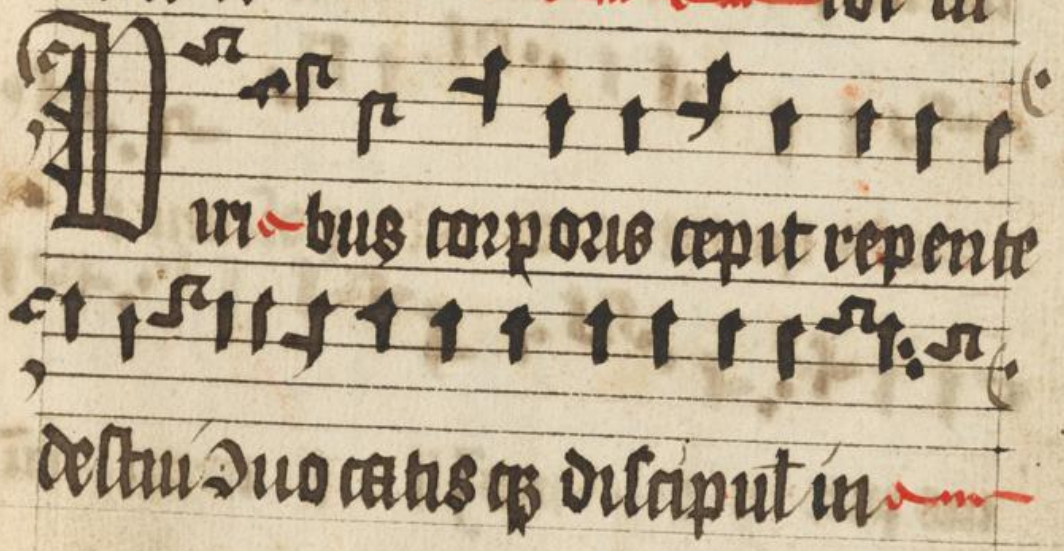 in
Viribus corporis cepit repente
destiui ɔuocatisqꝫ discipul̄ in